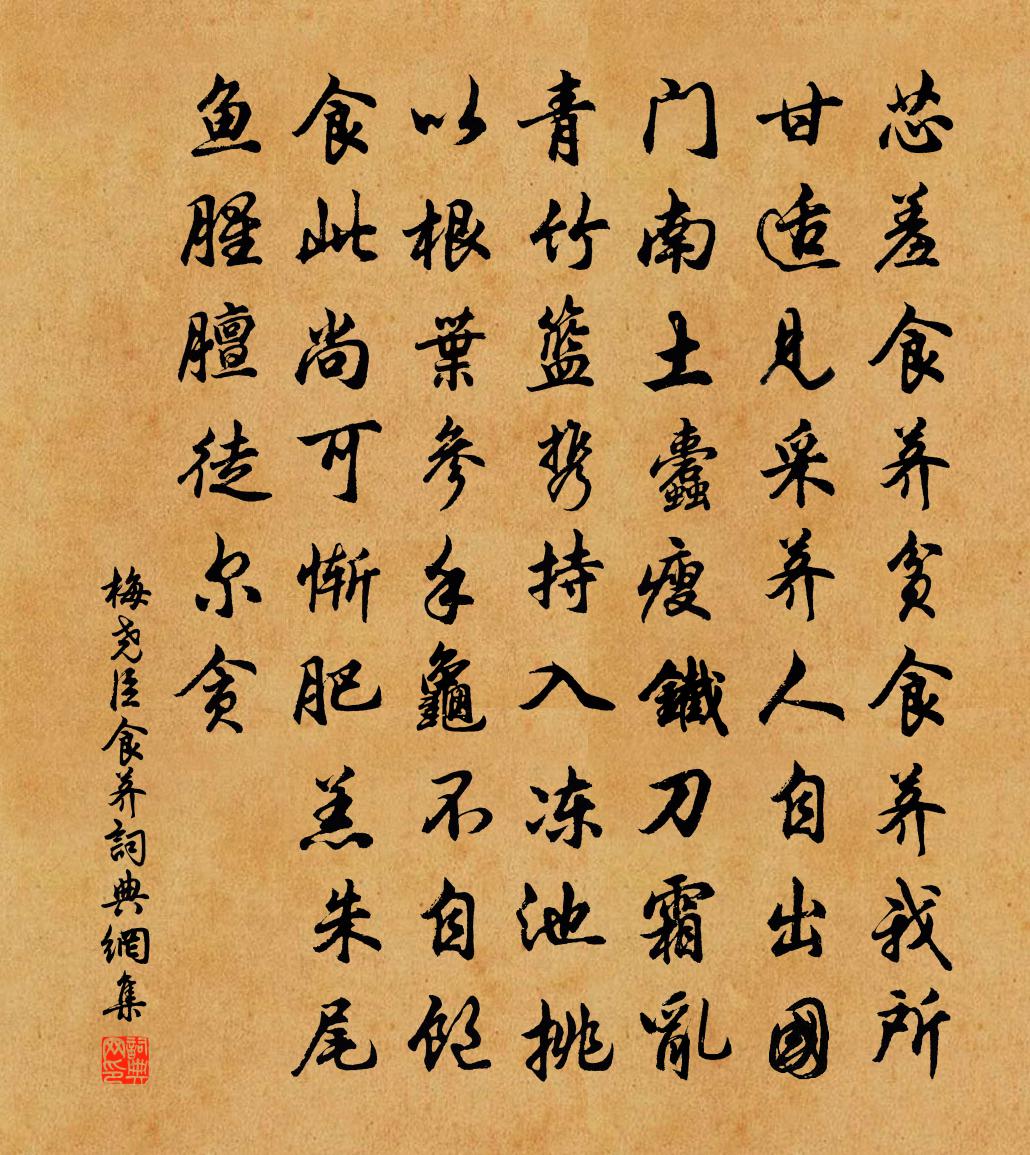 芯羞食荠贫食荠我所
甘适见采荠人自出國
门南土蠹瘦鐵刀霜亂
青竹籃携持入冻池挑
以根葉參手龜不自飽
食此尚可惭肥羔朱尾
鱼腥膻徒尔贪
梅尧臣食荠詞典網集
詞典网印